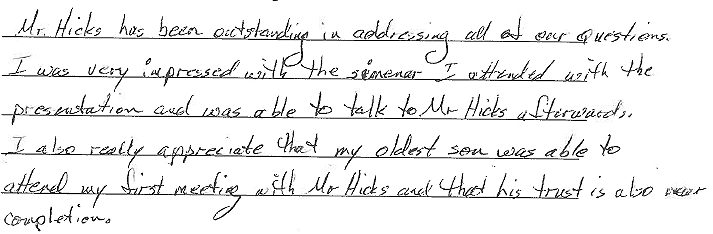 Mr. Hicks has been outstanding in addressing all of our questions.
I was very impressed with the simenar I attended with the
presentation and was able to talk to Mr Hicks afterwards.
I also really appreciate that my oldest son was able to
attend my first meeting with Mr Hicks and that his trust is also near
completion.